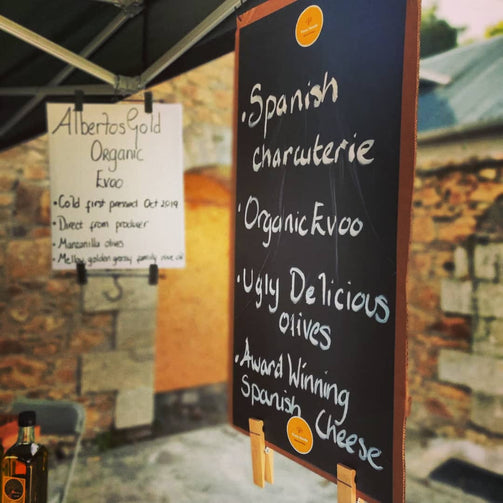 AlbertosGold
Organic
Evoo
• Cold first pressed Oct 2019
• Direct from producer
• Manzanilla olives
golden grassy family olive oil
• Spanish
charcuterie
• Organic Evoo
• Ugly Delicious
olives
• Award Winning
Spanish Cheese